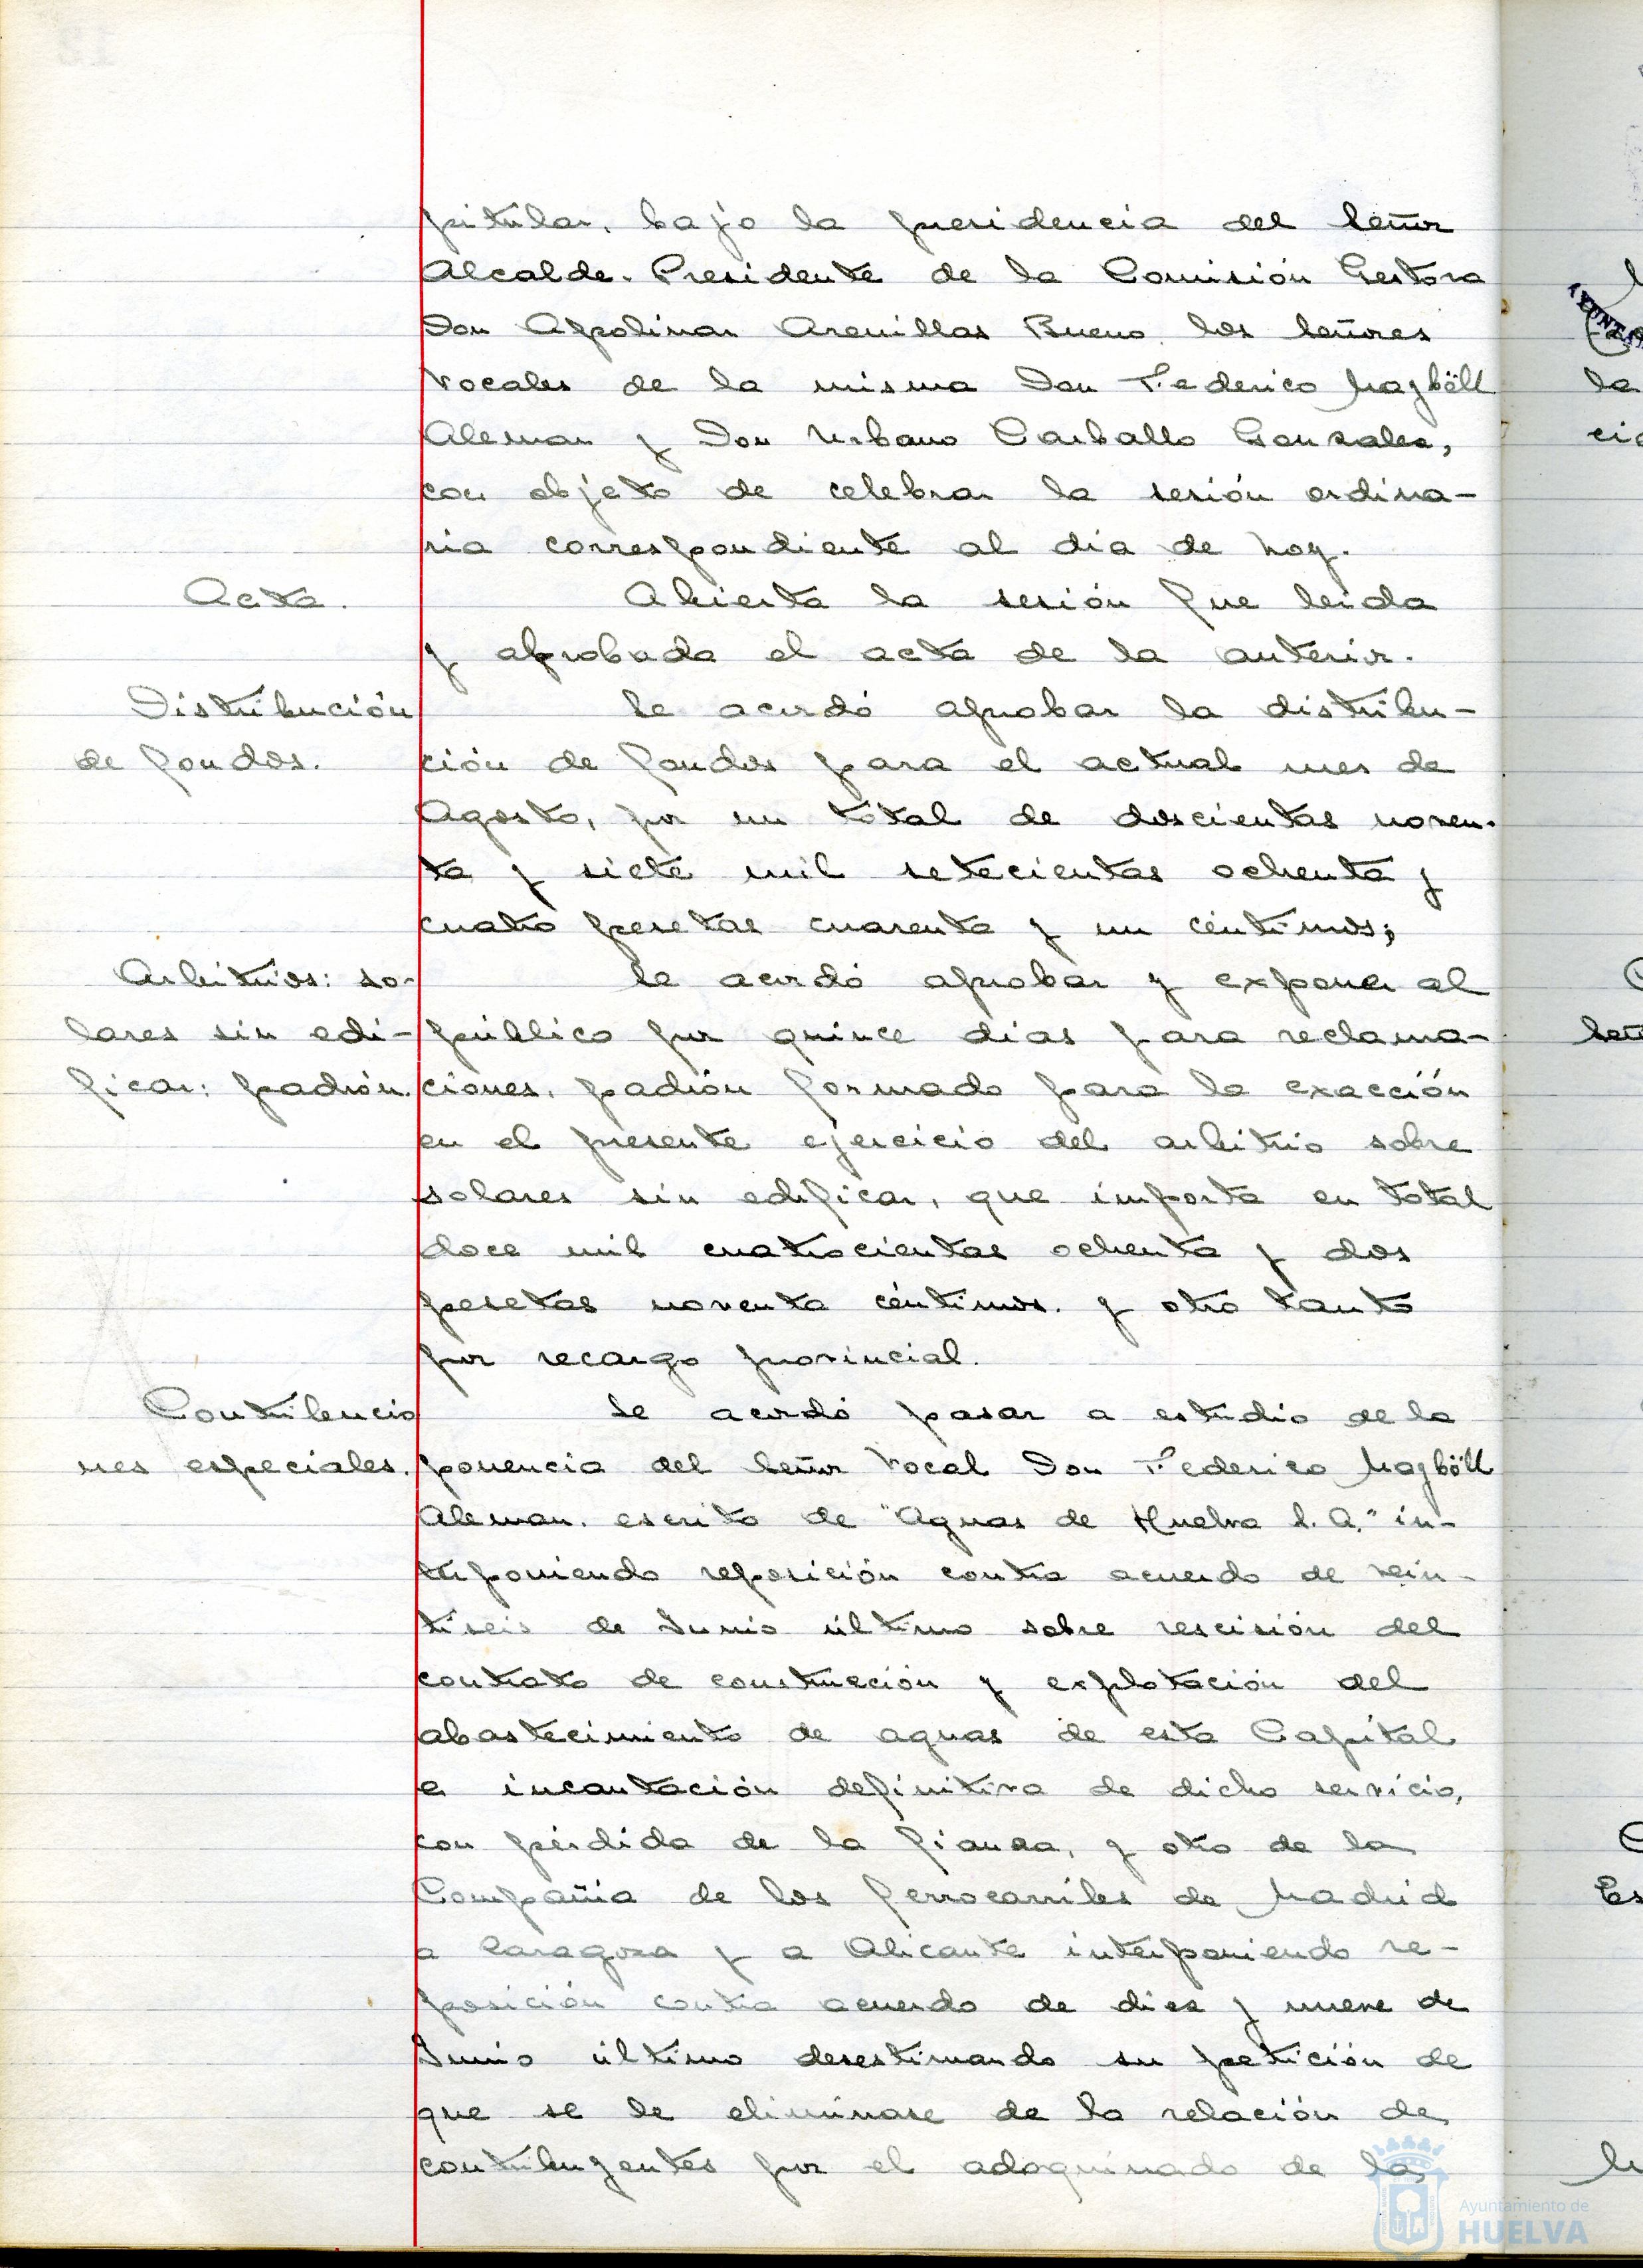 pitular, bajo la presidencia del Señor
Alcalde-Presidente de la Comisión Gestora
Don Apolinar Arenillas Bueno los Señores
Vocales de la misma Don Federico Mayböll
Aleman y Don Urbano Carballo Gonzalez,
con objeto de celebrar la sesión ordina-
ria correspondiente al dia de hoy.
Acta.
Abierta la sesión fue leida
y aprobada el acta de la anterior.
Distribución
de fondos.
Se acordó aprobar la distribu-
ción de fondos para el actual mes de
Agosto, por un total de doscientas noven-
ta y siete mil setecientas ochenta y
cuatro pesetas cuarenta y un céntimos;
Arbitrios: so-
lares sin edi-
ficar: padrón.
Se acordó aprobar y exponer al
público por quince dias para reclama-
ciones, padrón formado para la exacción
en el presente ejercicio del arbitrio sobre
solares sin edificar, que importa en total
doce mil cuatrocientas ochenta y dos
pesetas noventa céntimos. y otro tanto
por recargo provincial.
Contribucio
nes especiales.
Se acordó pasar a estudio de la
ponencia del Señor Vocal Don Federico Mayböll
Aleman. escrito de "Aguas de Huelva S. A." in-
terponiendo reposición contra acuerdo de vein-
tiseis de Junio último sobre rescisión del
contrato de construcción y explotación del
abastecimiento de aguas de esta Capital
e incautación definitiva de dicho servicio,
con pérdida de la fianza, y otro de la
Compañia de los ferrocarriles de Madrid
a Zaragoza y a Alicante interponiendo re-
posición contra acuerdo de diez y nueve de
Junio último desestimando su petición de
que se le eliminase de la relación de
contribuyentes por el adoquinado de la
Ayuntamiento de
HUELVA